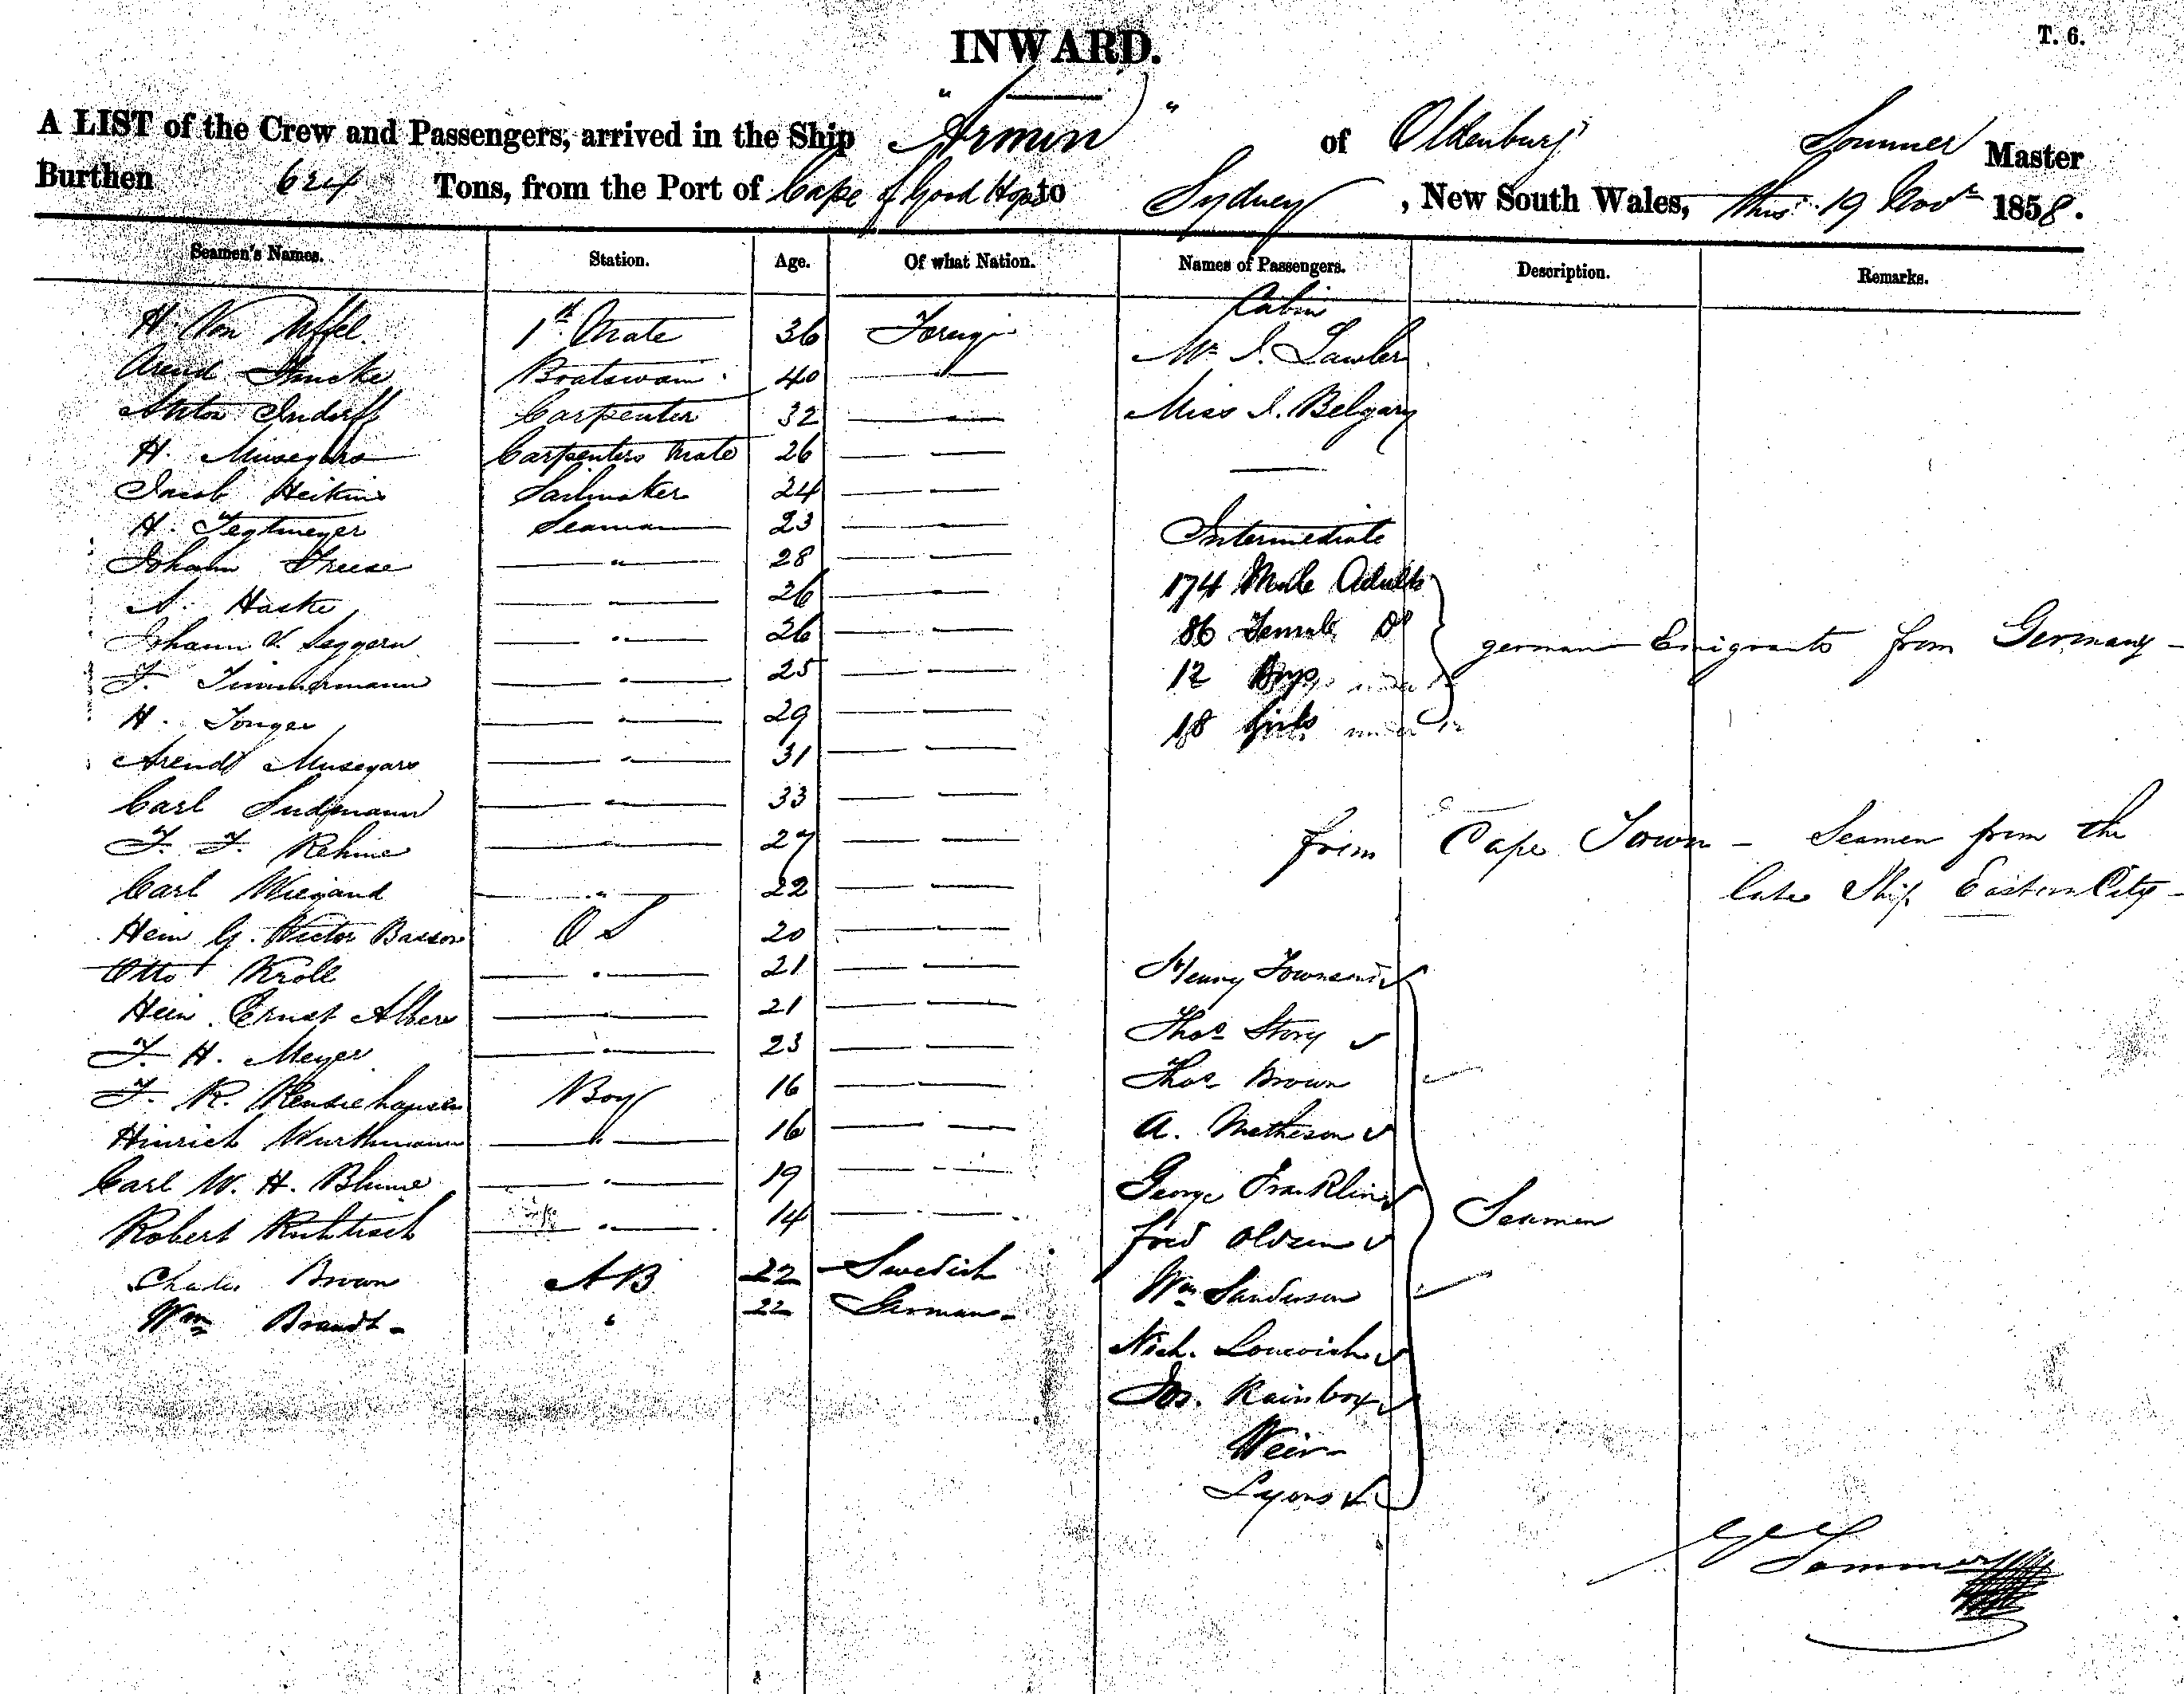 INWARD.
T. 6.
A LIST of the Crew and Passengers, arrived in the Ship "Armin" of Oldenburg Sommer Master
Burthen 624 Tons, from the Port of Cape of Good Hope to Sydney, New South Wales, this 19 Novr 1858.
Seamen's Names. Station. Age. Of what Nation. Names of Passengers. Description. Remarks.
Cabin
H. Von Uffel 1st Mate 36 Foreign Mr. J. Lawler
Arend Boatswain 40 — " —
Anton Indorff Carpenter 32 — — Miss J. Belgary
H. Musegars Carpenters Mate 26 — —
Jacob Heitkins Sailmaker 24 — —
H. Tegtmeyer Seaman 23 — — Intermediate
Johann Freese — " — 28 — —
A. Haske — " — 26 — — 174 Male Adults
Johann V. Seggern — " — 26 — — 86 Female Do german Emigrants from Germany —
F. Timmermann — " — 25 — — 12 Boys under 12
H. Tonger — " — 29 — — 18 Girls under 12
Arendt Musegars — " — 31 — —
Carl Sudmann — " — 33 — —
F. F. Rehme — " — 27 — — from Cape Town — Seamen from the
Carl Wiegand — " — 22 — — late Ship Eastern City —
Hein G. Victor Basson O S 20 — —
Otto Kroll — " — 21 — — Henry Townsend ✓
Hein Ernst Albers — " — 21 — —
Thos Story ✓
F. H. Meyer — " — 23 — —
Thos Brown ✓
F. R. Boy 16 — —
Hinrich Wurthmann — " — 16 — — A. Matheson ✓
Carl W. H. Blume — " — 19 — — George Franklin ✓
Robert — " — 14 — — Seamen
Fred Olsen ✓
Charles Brown AB 22 Swedish
Wm Sanderson ✓
Wm Brandt — " 22 German —
Nich. ✓
Jos. Rainbox ✓
Weir —
Lyons ✓
Sommer